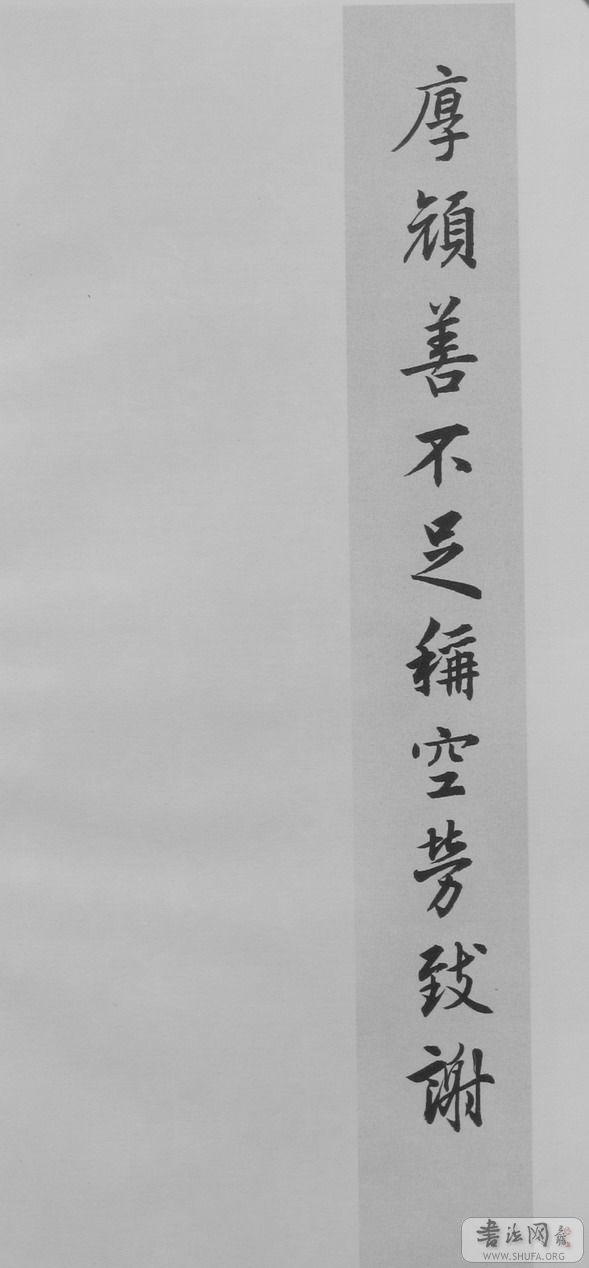 厚頑善不足稱空勞致謝
书法网
WWW.SHUFA.ORG